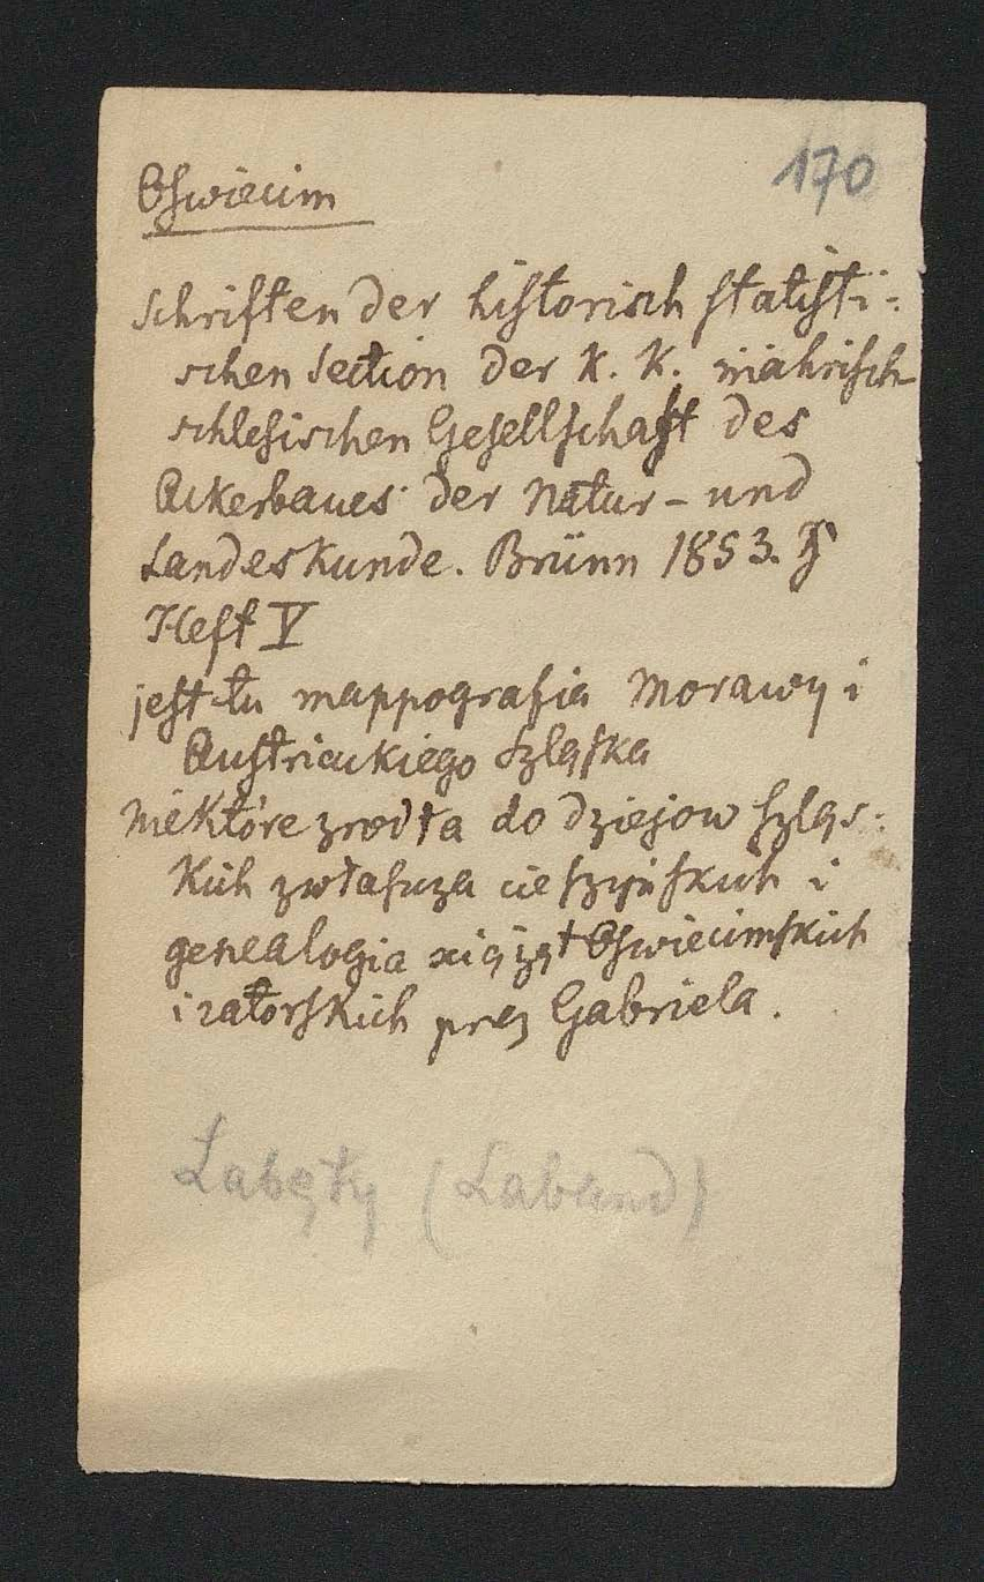 170
Oſwiecim
Schriften der hiſtoriſch ſtatiſti-
schen Section der K. K. mähriſch-
schleſischen Geſellſchaft des
Ackerbaues der Natur- und
Landeskunde. Brünn 1853.
Heft V
jeſt tu mappografia Morawy i
Auſtriackiego Szląſka
niektóre zrodła do dziejow ſzląs-
kich zwłaſzcza cieſzyńſkich i
genealogia xiążąt Oſwiecimſkich
i zatorſkich prez Gabriela.
Łabęty (Laband)